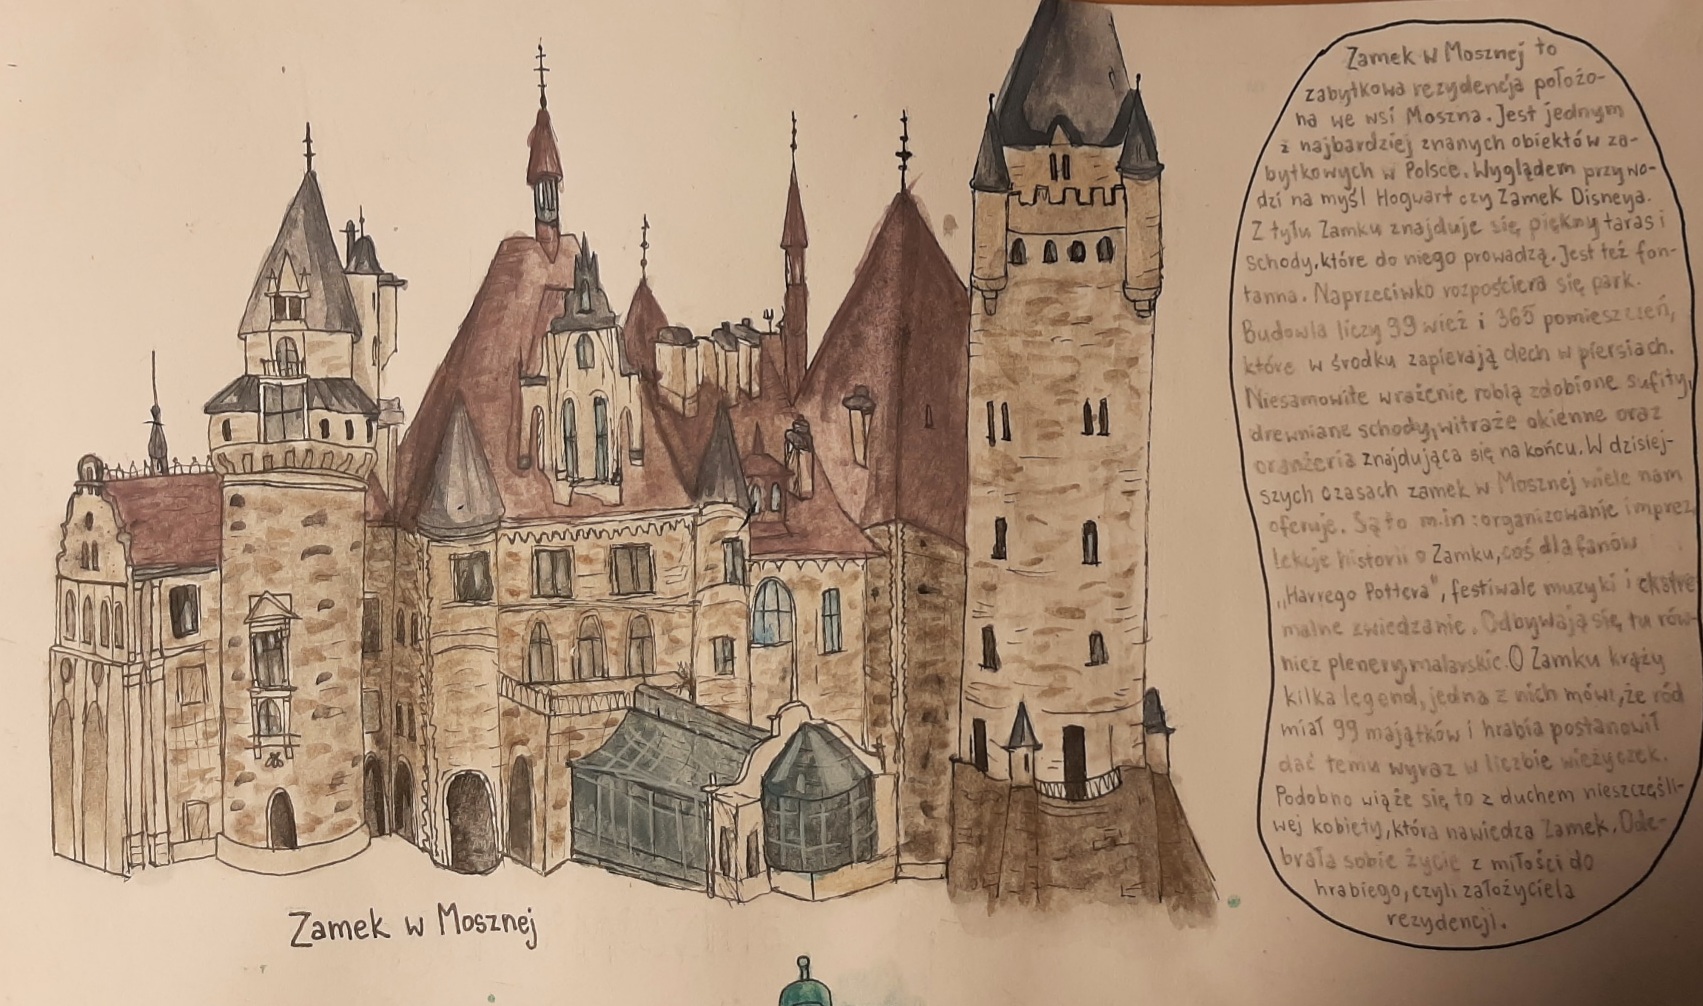 Zamek w Mosznej to
zabytkowa rezydencja położo-
na we wsi Moszna. Jest jednym
z najbardziej znanych obiektów za-
bytkowych w Polsce. Wyglądem przywo-
dzi na myśl Hogwart czy Zamek Disneya.
Z tyłu Zamku znajduje się piękny taras i
schody, które do niego prowadzą. Jest też fon-
tanna. Naprzeciwko rozpościera się park.
Budowla liczy 99 wież i 365 pomieszczeń,
które w środku zapierają dech w piersiach.
Niesamowite wrażenie robią zdobione sufity,
drewniane schody, witraże okienne oraz
oranżeria znajdująca się na końcu. W dzisiej-
szych czasach zamek w Mosznej wiele nam
oferuje. Są to m.in: organizowanie imprez,
lekcje historii o Zamku, coś dla fanów
„Harrego Pottera", festiwale muzyki i ekstre
malne zwiedzanie. Odbywają się tu rów-
nież plenery malarskie. O Zamku krąży
kilka legend, jedna z nich mówi, że ród
miał 99 majątków i hrabia postanowił
dać temu wyraz w liczbie wieżyczek.
Podobno wiąże się to z duchem nieszczęśli-
wej kobiety, która nawiedza Zamek. Ode-
brała sobie życie z miłości do
hrabiego, czyli założyciela
rezydencji.
Zamek w Mosznej